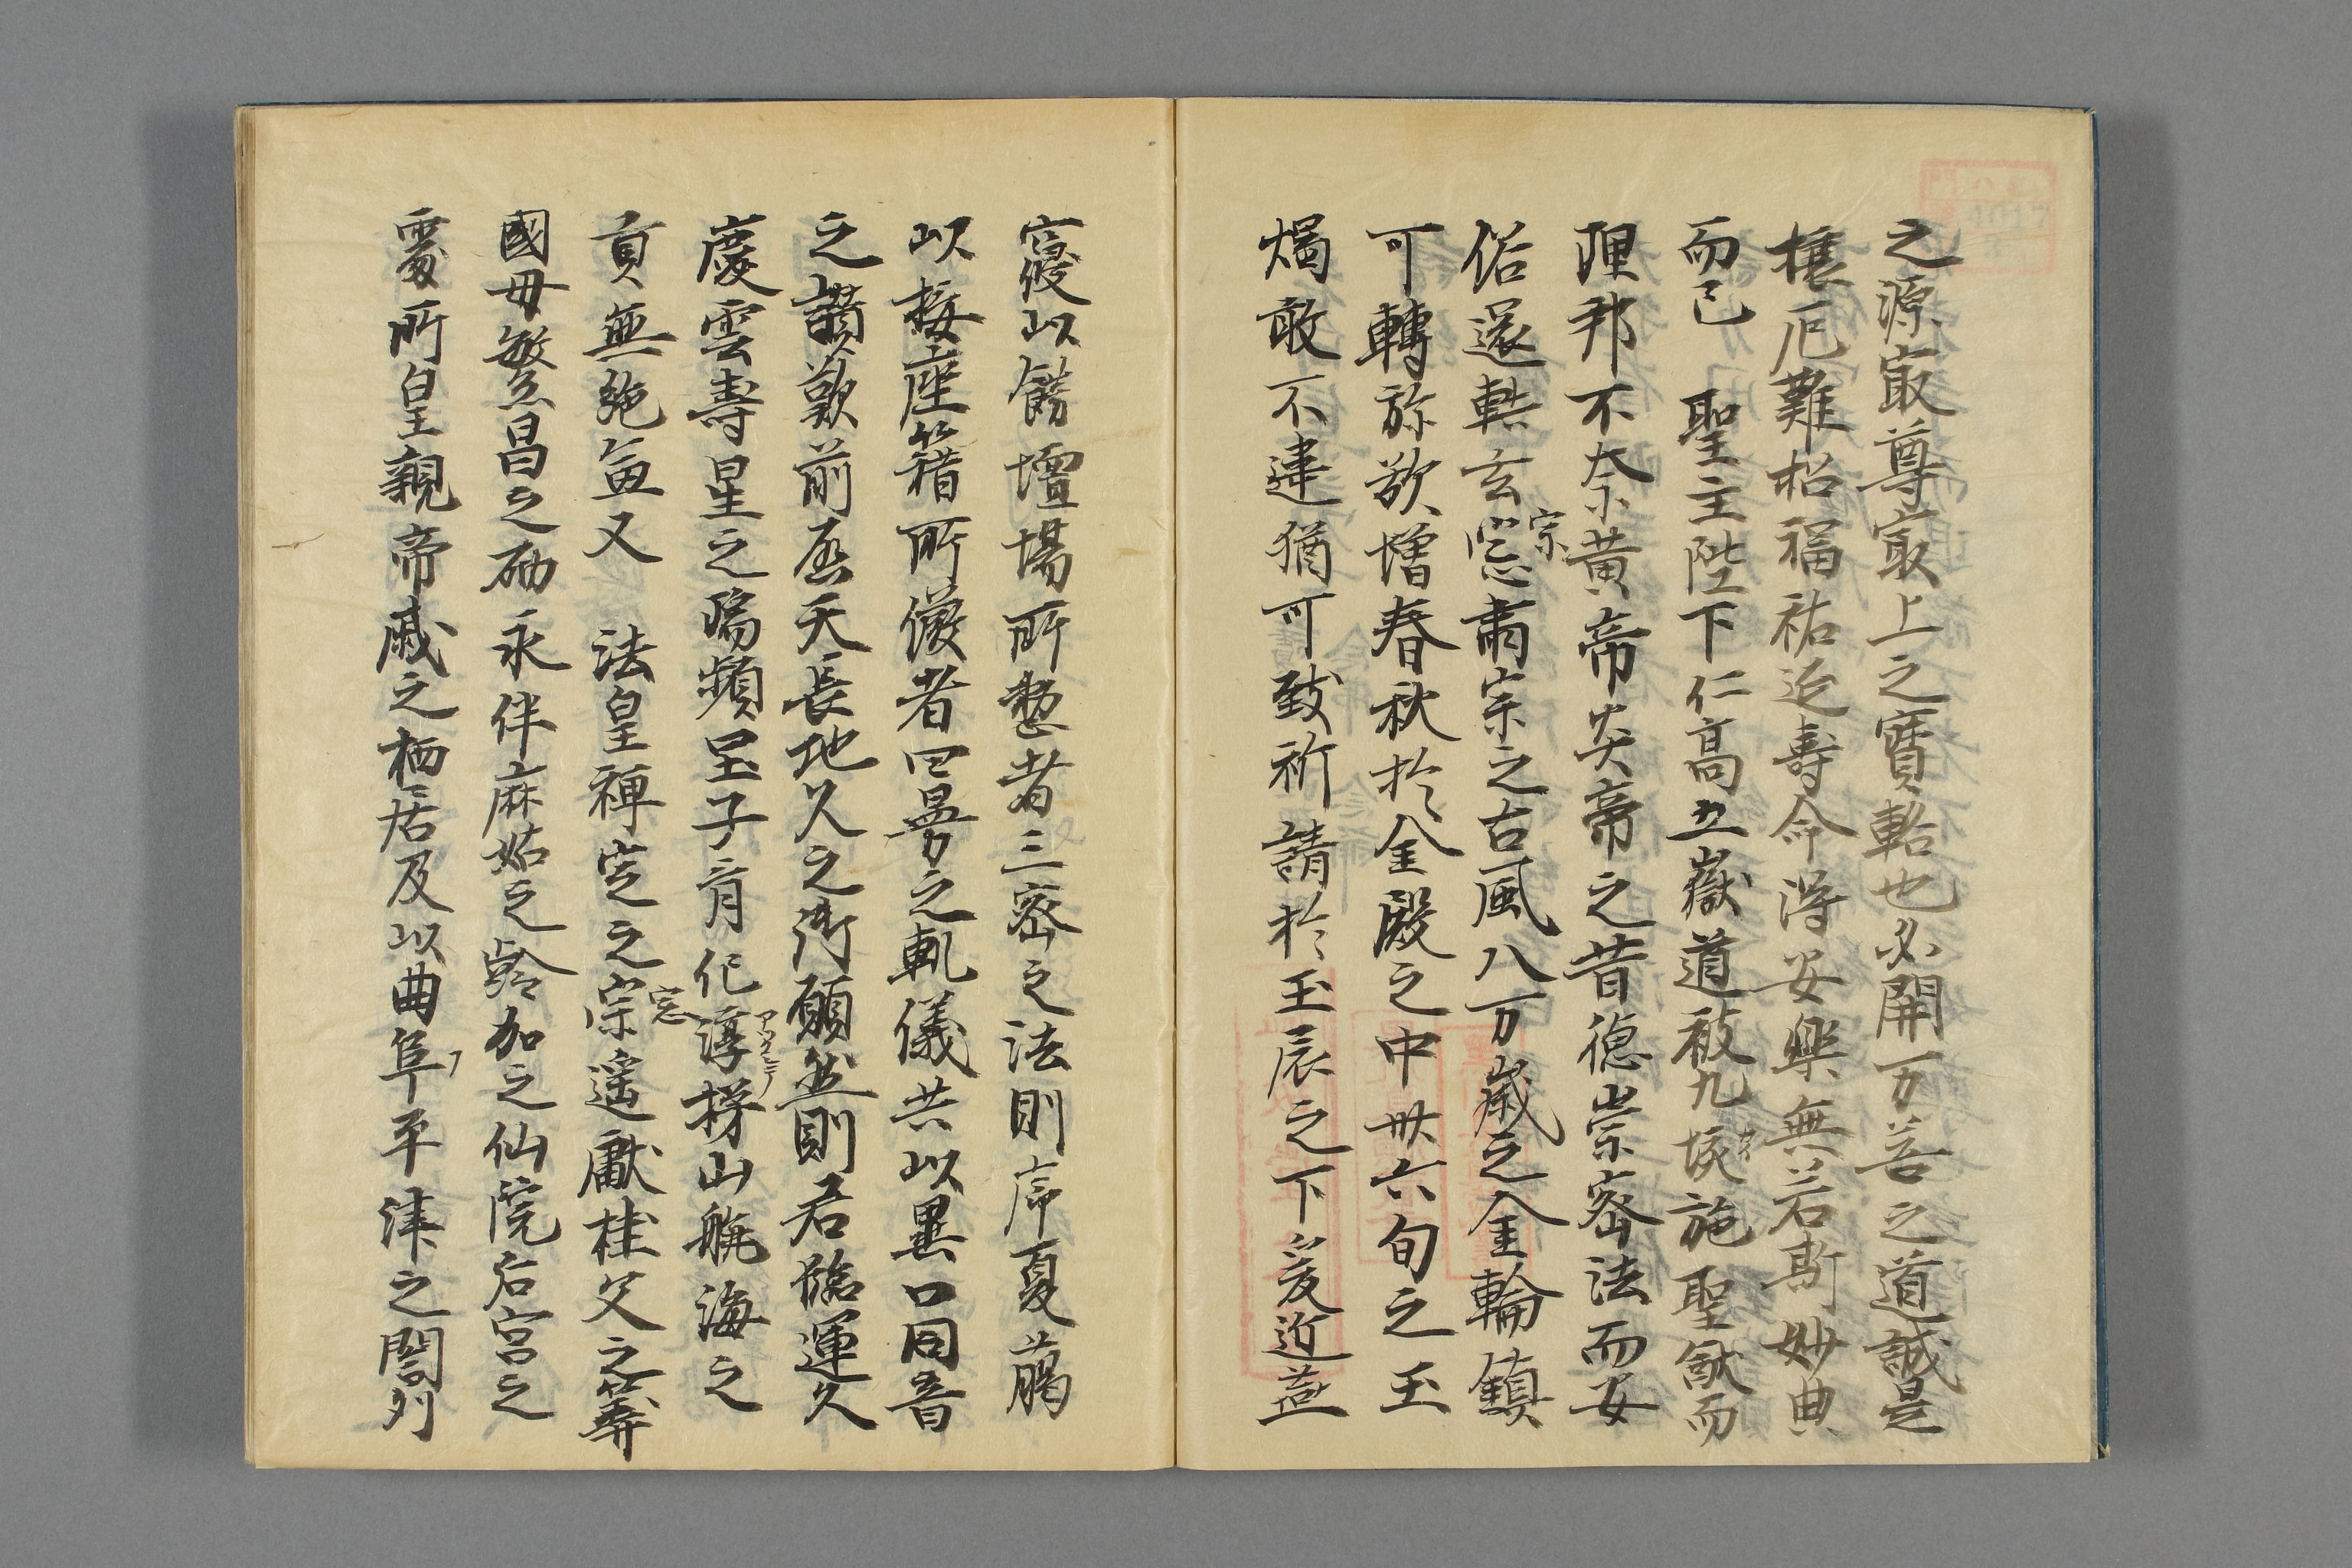 之源寂尊寂上之寶輅也必開万善之道誠是
攘厄難招福祐延壽命得安樂無若斯妙典
而已　聖主陛下仁高五嶽道被九垓施聖猷而
理邦不奈黄帝炎帝之昔德崇密法而安
俗還軼玄宗肅宗之古風八万歳之金輪鎮
可轉弥欲増春秋於金殿之中卅六旬之玉
燭敢不違猶可致祈請於玉扆之下爰近莚
寢以餝壇場所整者三密之法則序夏藹
以接座籍所儼者四曼之軌儀共以異口同音
之讃歎前啓天長地久之御願然則君臨運久
慶雲壽星之瑞頻呈子育化淳梯山航海之
貢無絶矣又　法皇禅定之窓遥獻桂父之算
國母繁昌之砌永伴麻姑之齡加之仙院后宮之
震所皇親帝戚之栖居及以曲阜平津之閤列